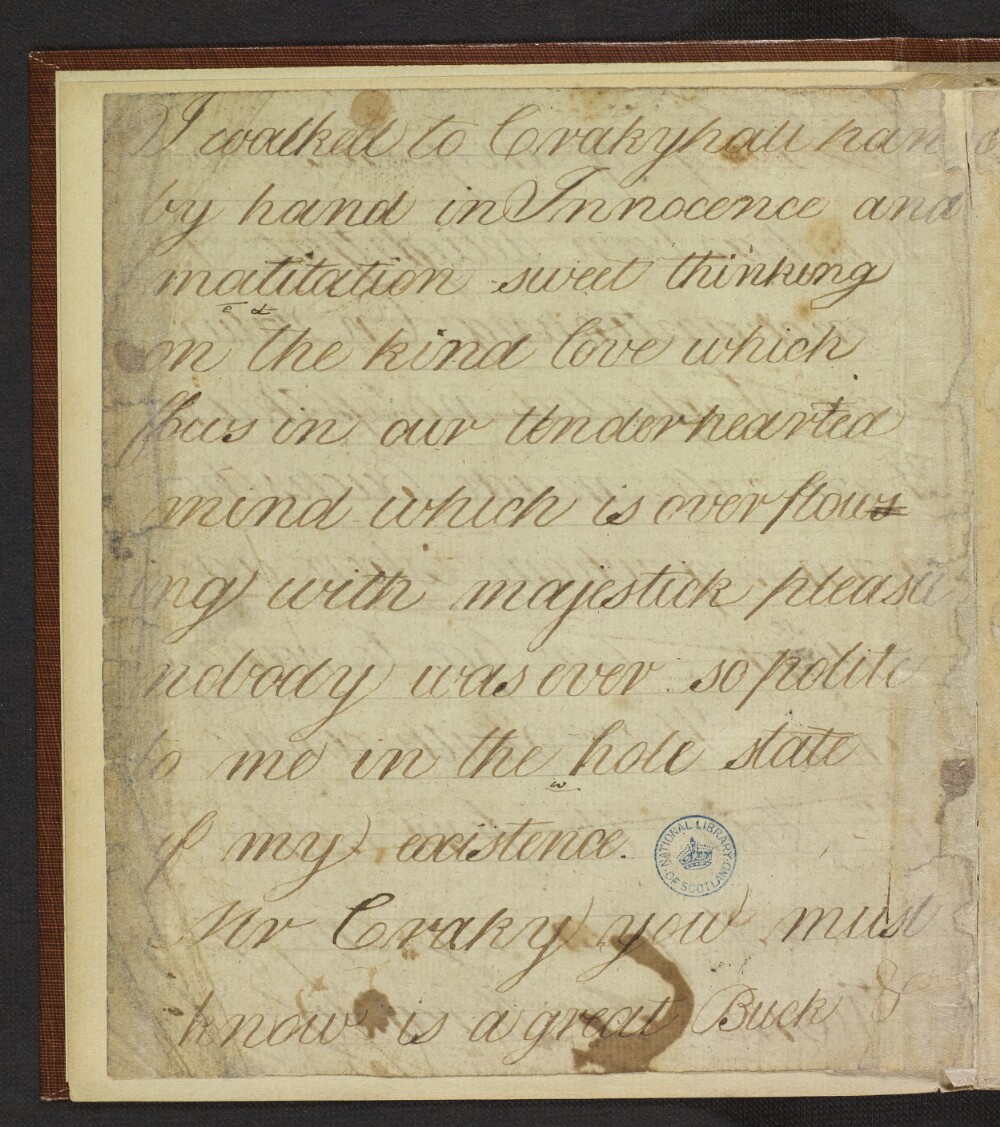 I walked to Crakyhall han
by hand in Innocence and
matitation sweet thinking
e d
on the kind love which
flows in our tender hearted
mind which is overflow
ing with majestick pleasu
nobody was ever so polite
to me in the hole state
w
of my existence.
NATIONAL LIBRARY OF SCOTLAND
Mr Craky you must
know is a great Buck &